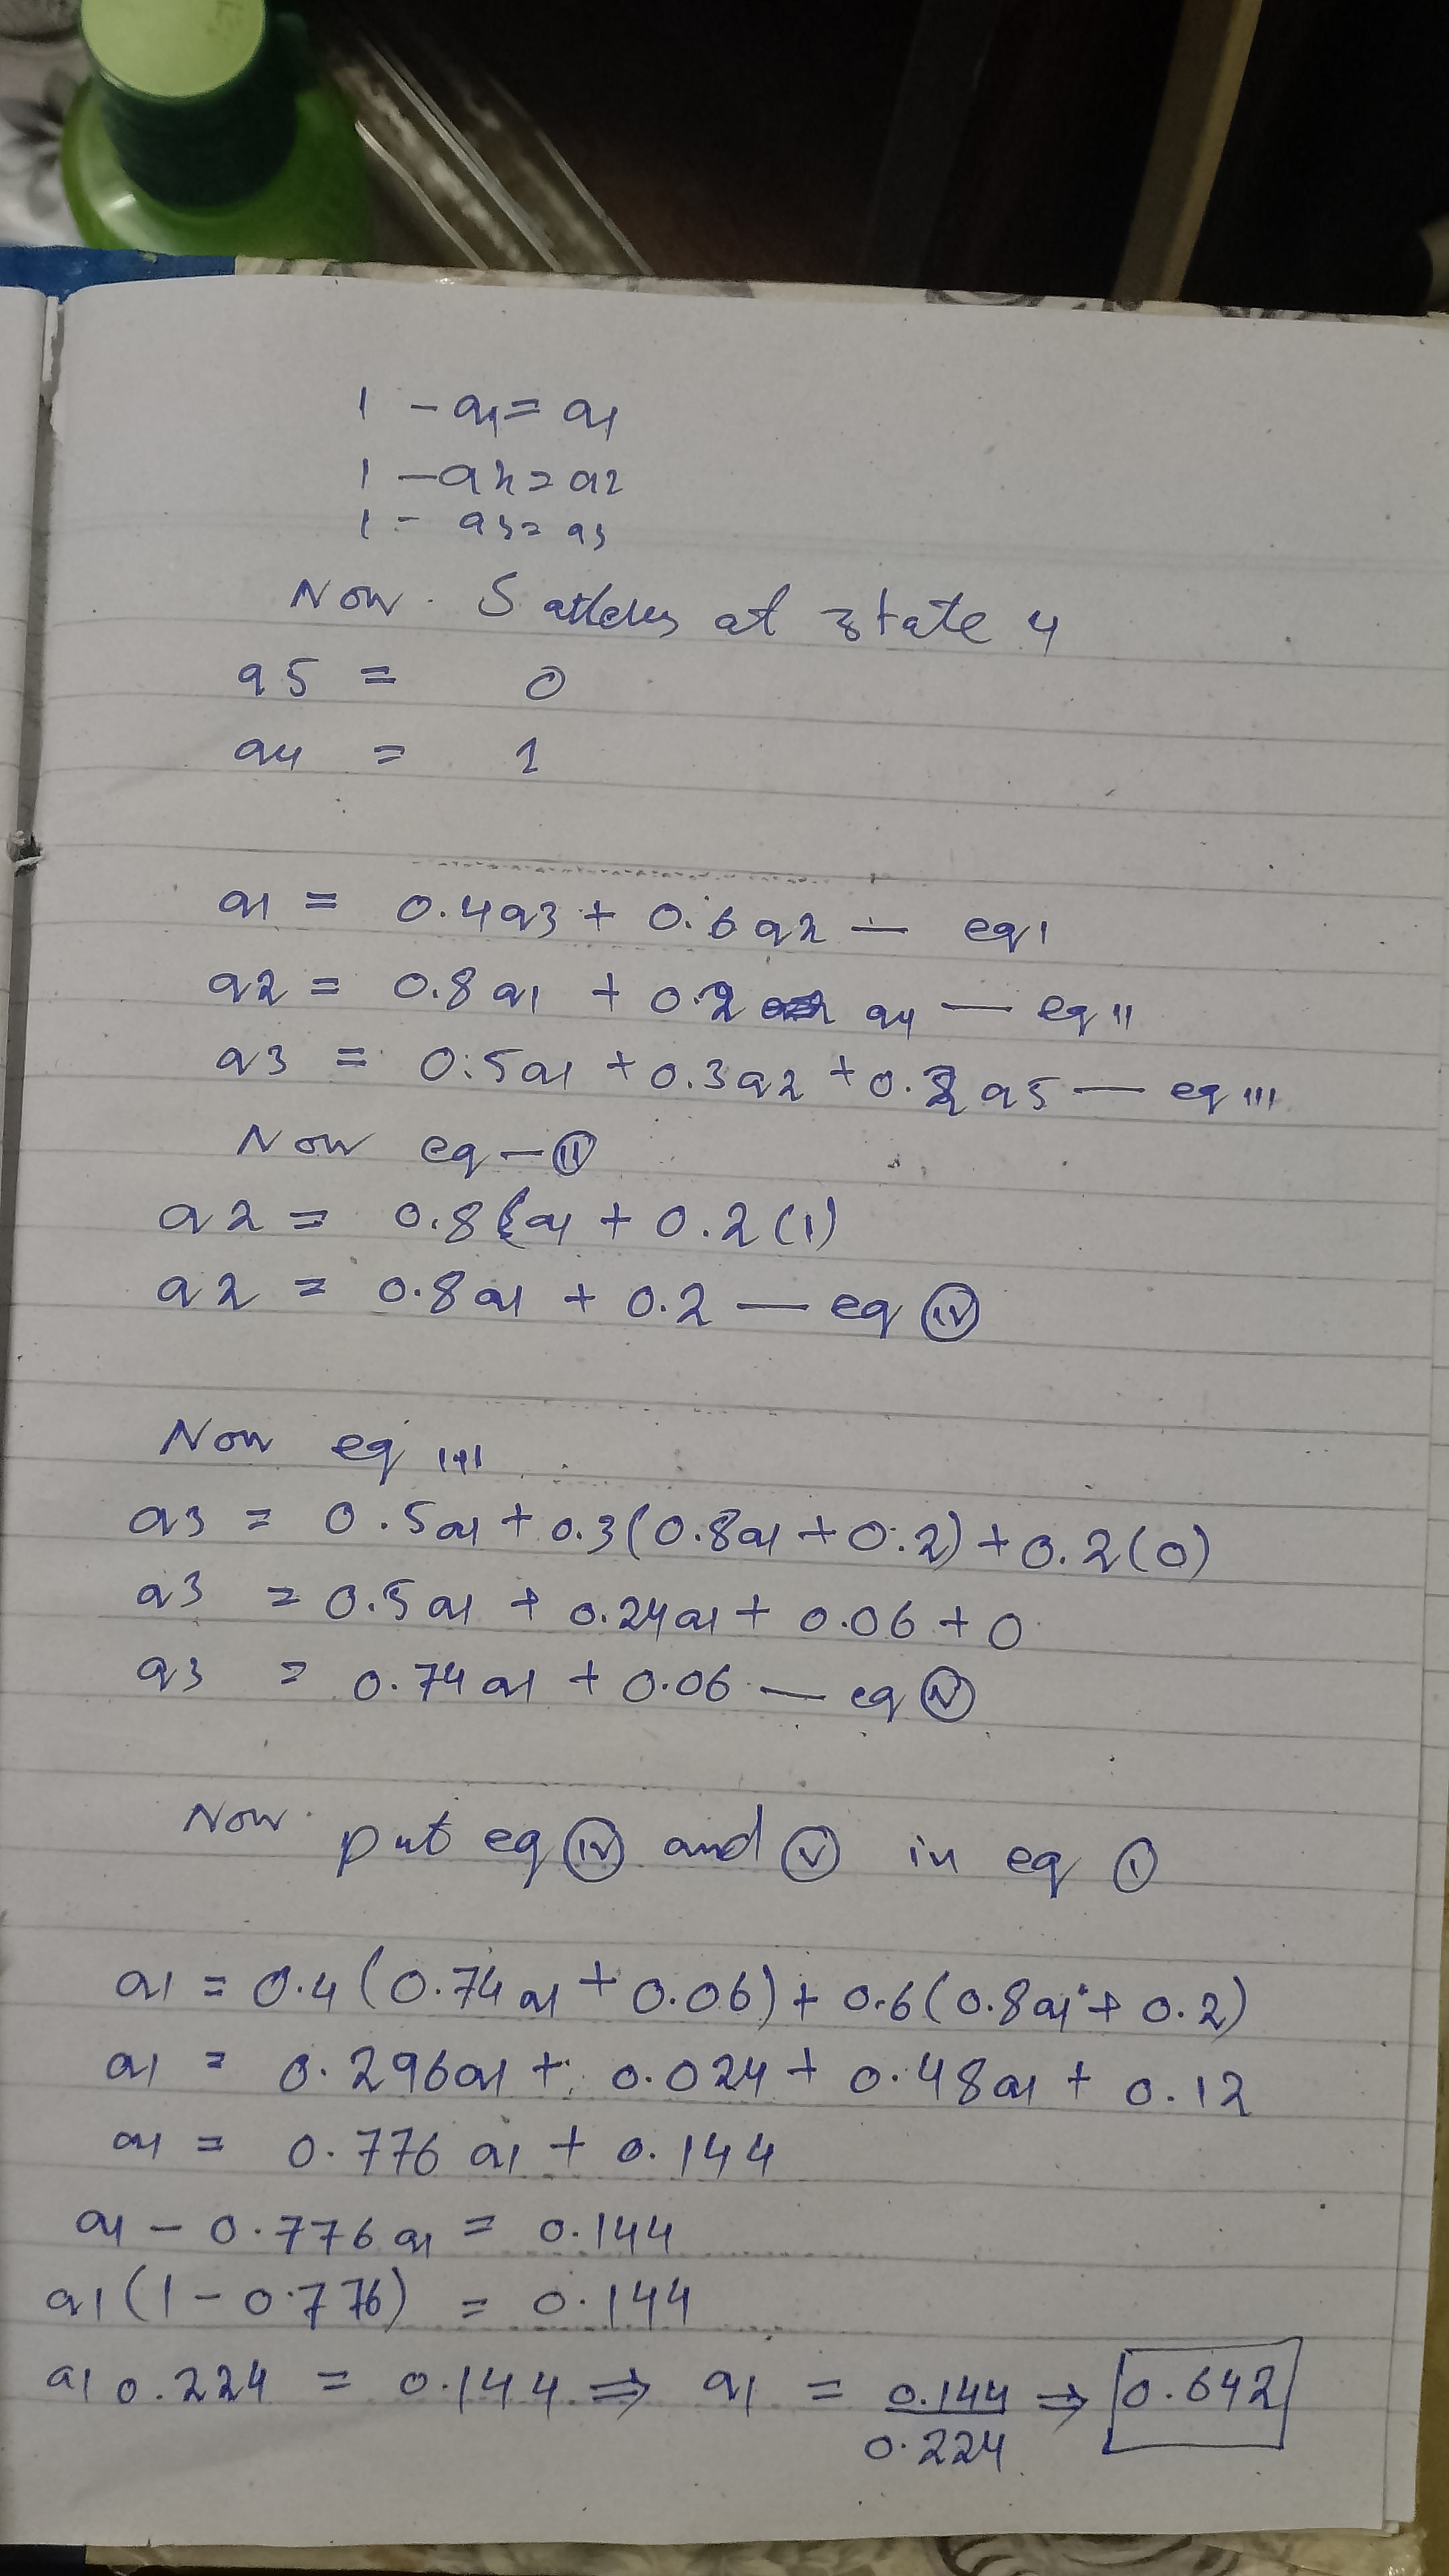 1 - a1 = a1
1 - a2 = a2
1 - a3 = a3
Now. Settles at state 4
a5 = 0
a4 = 1
a1 = 0.4a3 + 0.6a2 — eq I
a2 = 0.8a1 + 0.2 a4 — eq II
a3 = 0.5a1 + 0.3a2 + 0.2 a5 — eq III
Now eq - II
a2 = 0.8 a1 + 0.2 (1)
a2 = 0.8a1 + 0.2 — eq IV
Now eq III
a3 = 0.5a1 + 0.3(0.8a1 + 0.2) + 0.2(0)
a3 = 0.5a1 + 0.24a1 + 0.06 + 0
a3 = 0.74a1 + 0.06 — eq V
Now put eq IV and V in eq I
a1 = 0.4(0.74a1 + 0.06) + 0.6(0.8a1 + 0.2)
a1 = 0.296a1 + 0.024 + 0.48a1 + 0.12
a1 = 0.776 a1 + 0.144
a1 - 0.776a1 = 0.144
a1(1 - 0.776) = 0.144
a1 0.224 = 0.144 ⇒ a1 = 0.144 / 0.224 ⇒ 0.642